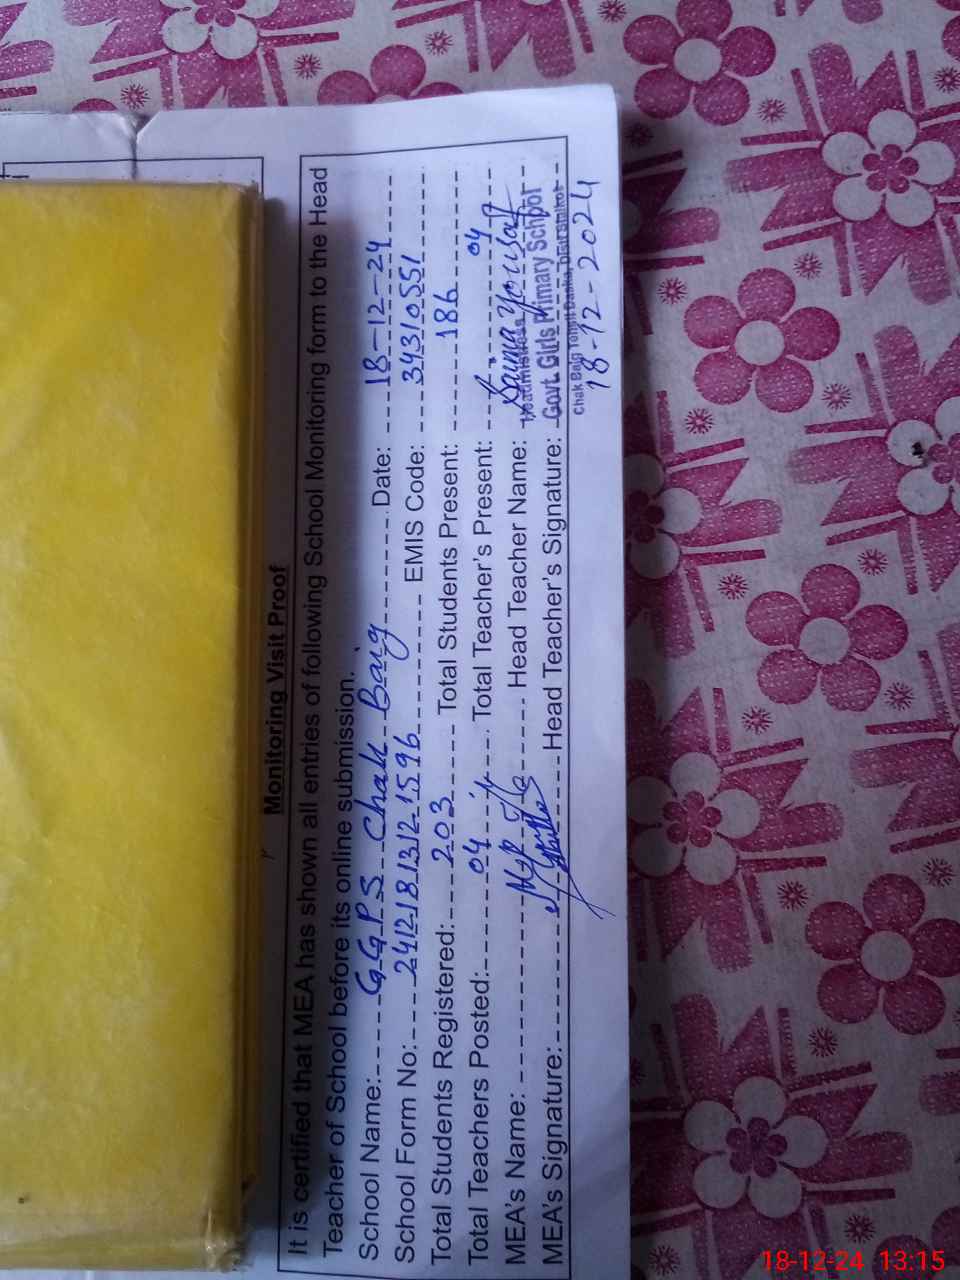 Monitoring Visit Proof
It is certified that MEA has shown all entries of following School Monitoring form to the Head
Teacher of School before its online submission.
School Name: GGPS Chak Baig Date: 18-12-24
School Form No: 241218131215 96 EMIS Code: 34310551
Total Students Registered: 203 Total Students Present: 186
Total Teachers Posted: 04 Total Teacher's Present: 04
MEA's Name: Head Teacher Name: Saima Yousaf
Headmistress
MEA's Signature: Head Teacher's Signature: Govt. Girls Primary School
Chak Baig Tehsil Daska, Distt Sialkot
18-12-2024
18-12-24 13:15